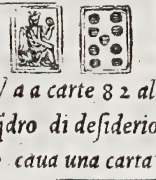 V a a carte 8 2 al
q̃dro di deſiderio
caua una carta